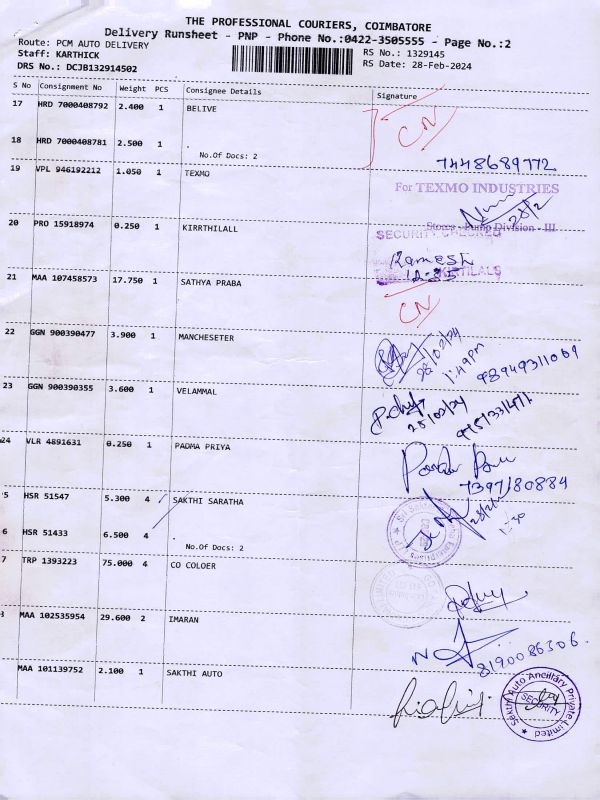 THE PROFESSIONAL COURIERS, COIMBATORE
Delivery Runsheet - PNP - Phone No.:0422-3505555 - Page No.:2
Route: PCM AUTO DELIVERY
Staff: KARTHICK
RS No.: 1329145
DRS No.: DCJB132914502
RS Date: 28-Feb-2024
S No Consignment No Weight PCS Consignee Details Signature
17 HRD 7000408792 2.400 1 BELIVE
CN
18 HRD 7000408781 2.500 1 .
No.Of Docs: 2
7448689772
19 VPL 946192212 1.050 1 TEXMO
For TEXMO INDUSTRIES
28/2
Stores - Pump Division - III
20 PRO 15918974 0.250 1 KIRRTHILALL
SECURITY CHECKED
Ramesh
21 MAA 107458573 17.750 1 SATHYA PRABA
CN
22 GGN 900390477 3.900 1 MANCHESETER
28/02/24
1:49PM
9894931069
23 GGN 900390355 3.600 1 VELAMMAL
24 VLR 4891631 0.250 1 PADMA PRIYA
7397180884
5 HSR 51547 5.300 4 SAKTHI SARATHA
1:30
6 HSR 51433 6.500 4 .
No.Of Docs: 2
7 TRP 1393223 75.000 4 CO COLOER
MAA 102535954 29.600 2 IMARAN
8190086306.
MAA 101139752 2.100 1 SAKTHI AUTO
Sakthi Auto Ancillary Private Limited
SECURITY